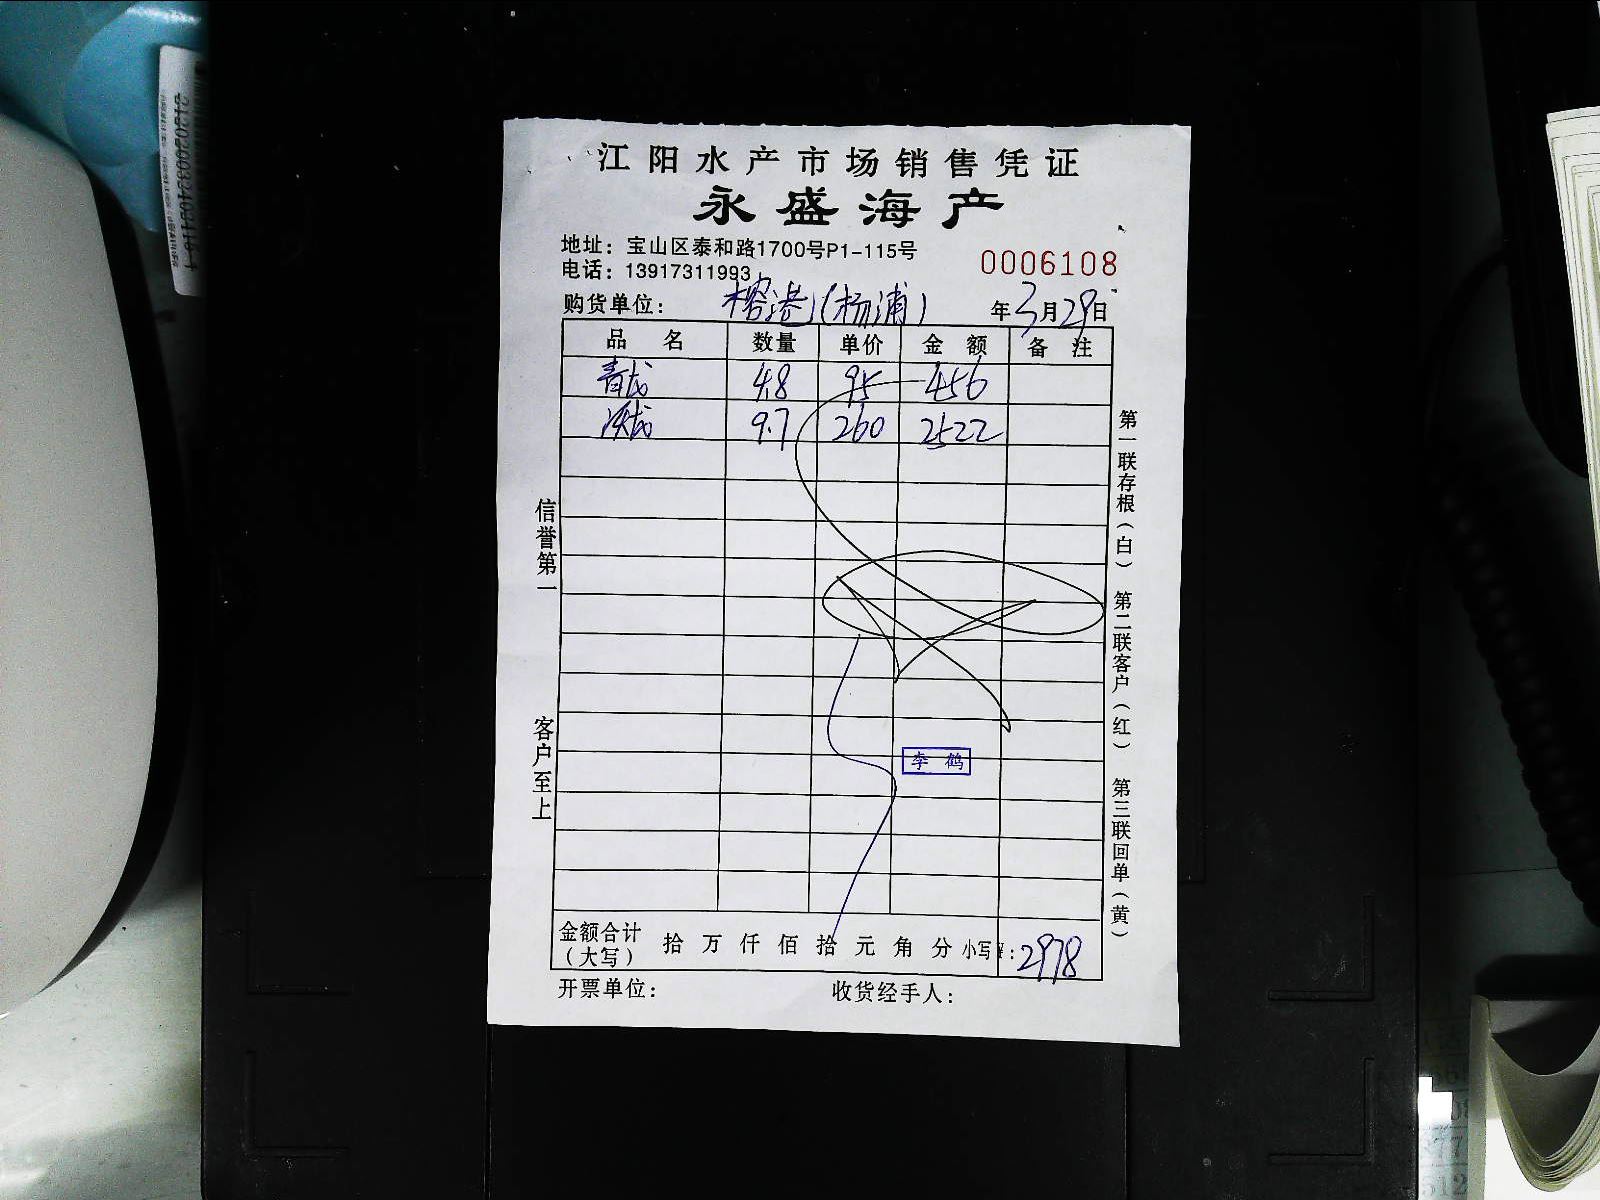 江阳水产市场销售凭证
永盛海产
地址：宝山区泰和路1700号P1-115号
电话：13917311993
0006108
购货单位： 榕港（杨浦） 年3月29日
品名 数量 单价 金额 备注
青龙 4.8 95 456
9.7 260 2522
信誉第一
客户至上
第一联存根（白）
第二联客户（红）
第三联回单（黄）
李鹤
金额合计（大写） 拾万仟佰拾元角分 小写¥：2978
开票单位： 收货经手人：